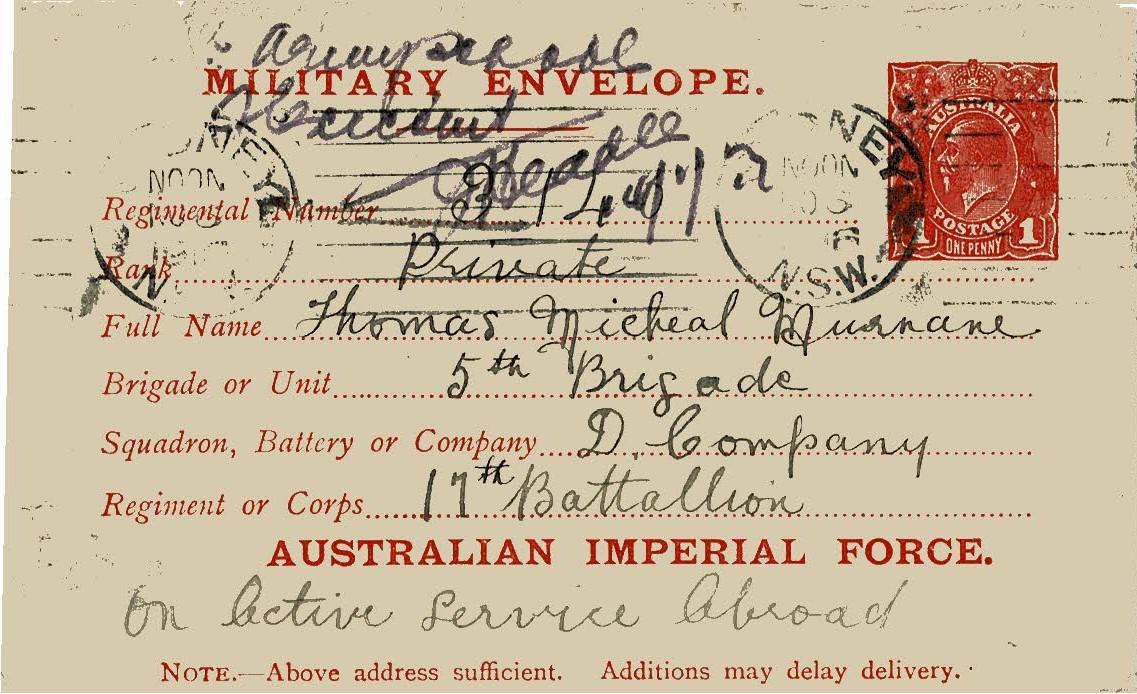 Army School
MILITARY ENVELOPE.
AUSTRALIA
POSTAGE
ONE PENNY 1
SYDNEY
NOON
N.S.W.
Regimental Number
Rank Private
Full Name Thomas Micheal Murnane
Brigade or Unit 5th Brigade
Squadron, Battery or Company D. Company
Regiment or Corps 17th Battallion
AUSTRALIAN IMPERIAL FORCE.
On Active Service Abroad
NOTE.—Above address sufficient. Additions may delay delivery.